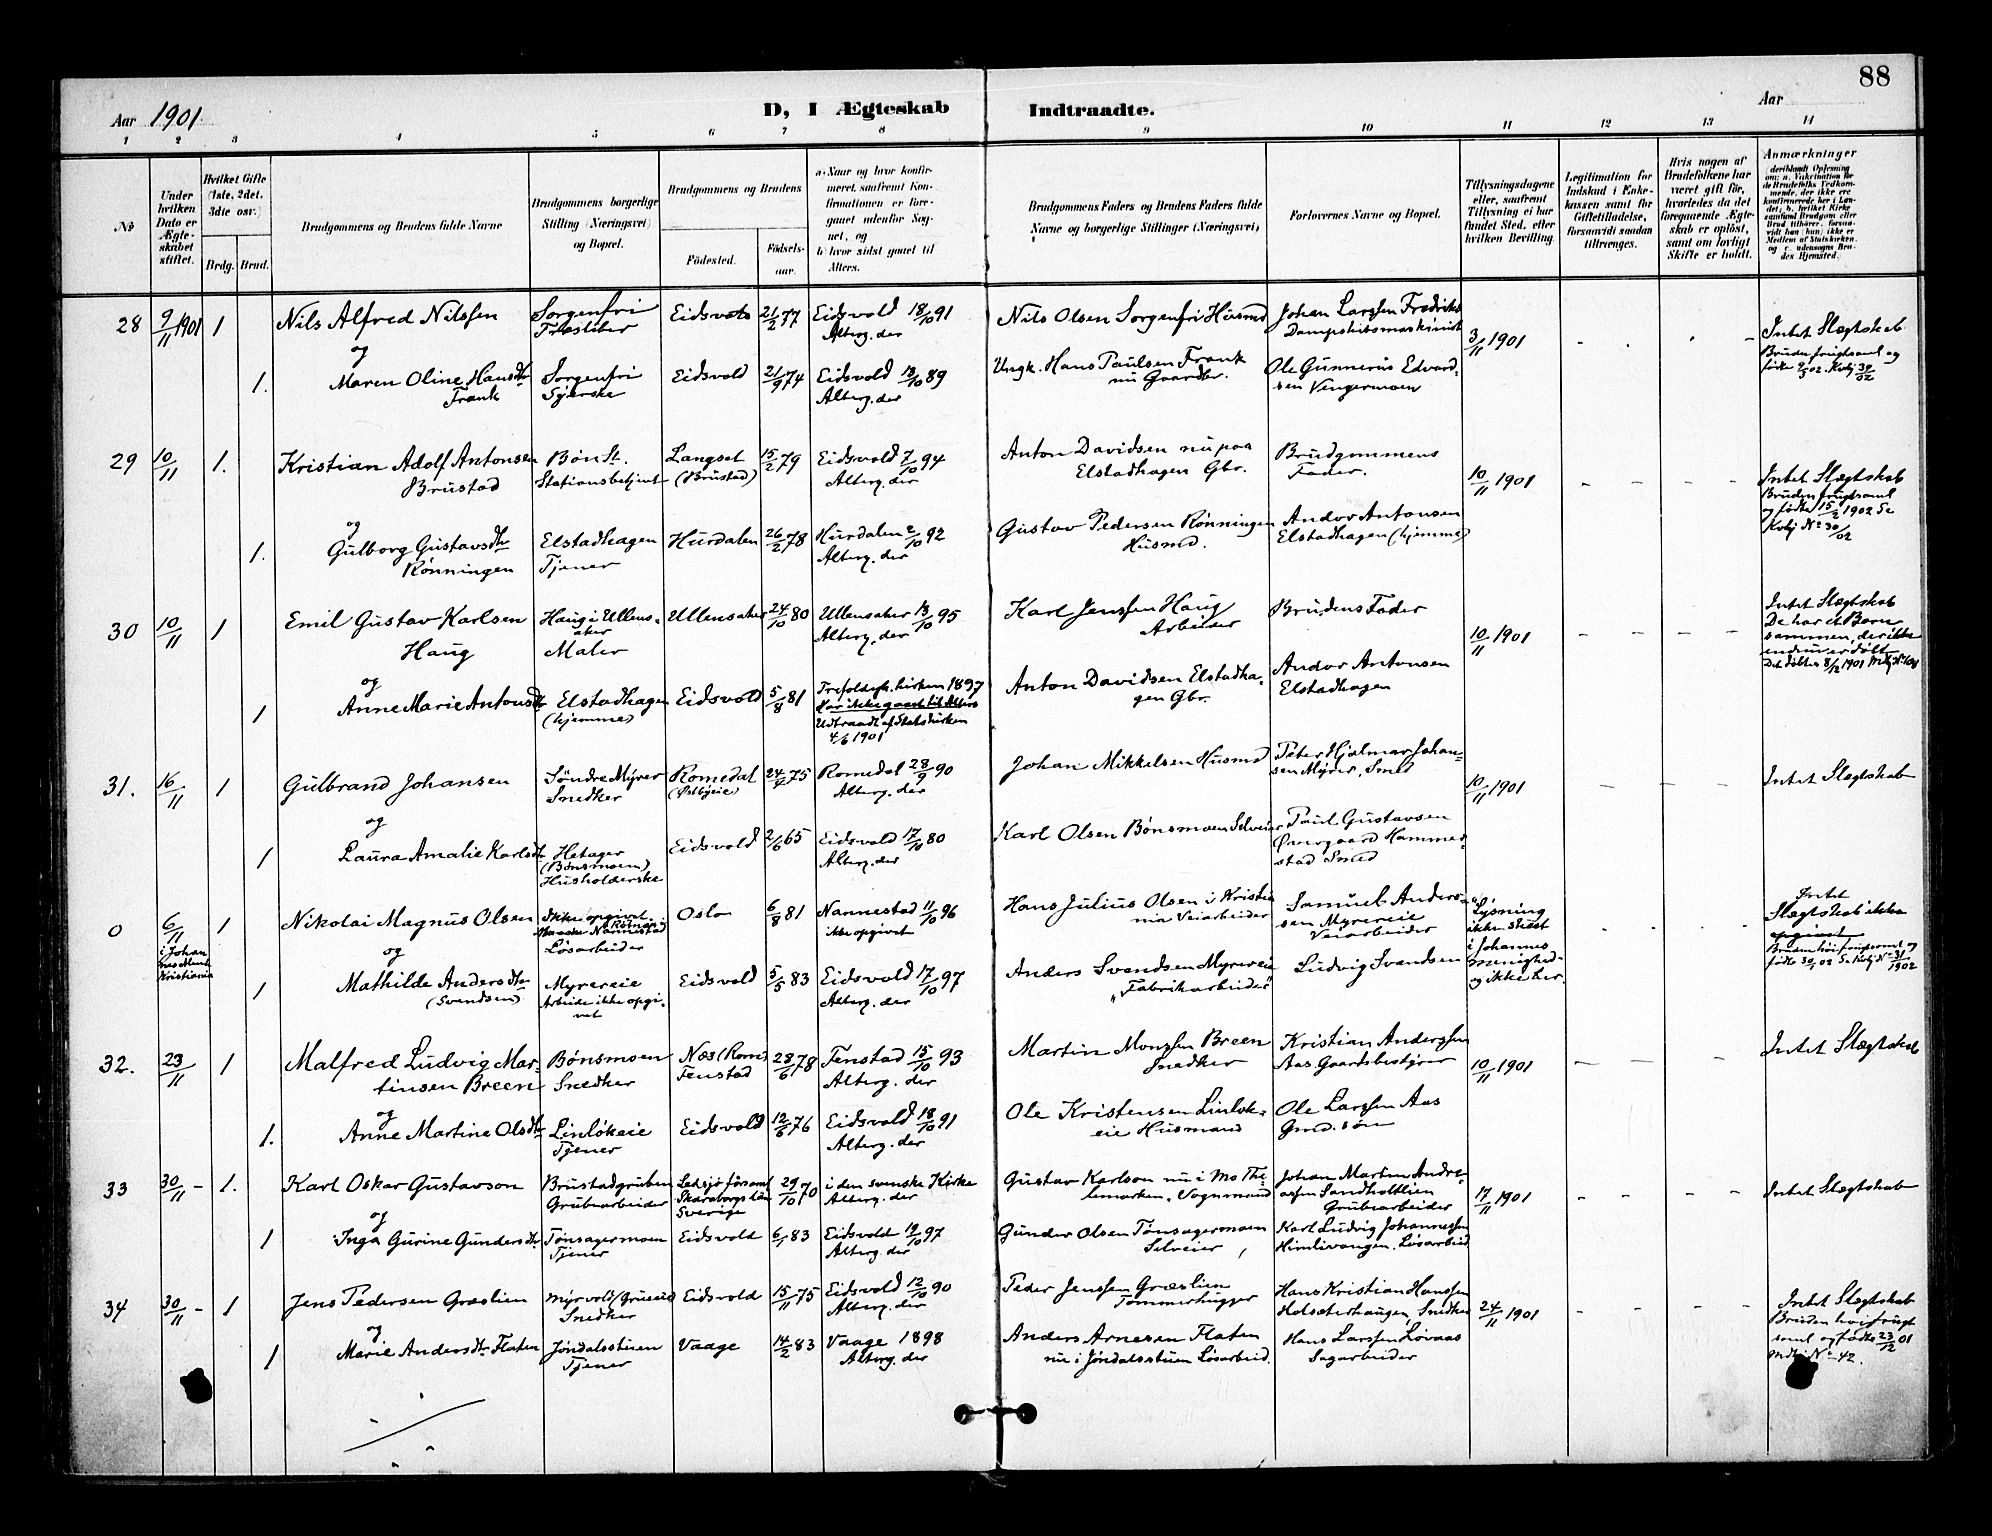 88
Aar 1901
D, I Ægteskab Indtraadte.
Aar
1 2 3 4 5 6 7 8 9 10 11 12 13 14
No
Under hvilken Dato er Ægteskabet stiftet.
Hvilket Gifte (1ste, 2det. 3die osv.)
Brdg. Brud.
Brudgommens og Brudens fulde Navne
Brudgommens borgerlige Stilling (Næringsvei) og Bopæl.
Brudgommens og Brudens
Födested.
Födselsaar.
a. Naar og hvor konfirmeret, saafremt Konfirmationen er foregaaet udenfor Sognet, og
b. hvor sidst gaaet til Alters.
Brudgommens Faders og Brudens Faders fulde Navne og borgerlige Stillinger (Næringsvei)
Forlovernes Navne og Bopæl.
Tillysningsdagene eller, saafremt Tillysning ei har fundet Sted, efter hvilken Bevilling.
Legitimation for Indskud i Enkekassen samt for Giftetilladelse, forsaavidt saadan tiltrænges.
Hvis nogen af Brudefolkene har været gift för, hvorledes da det foregaaende Ægteskab er oplöst, samt om lovligt Skifte er holdt.
Anmærkninger
28 9/11 1901 1 Nils Alfred Nilssen Sorgenfri Eidsvold 21/2 77 Eidsvold 18/10 91 Nils Olsen Sorgenfri Husmd Johan Larssen Fredriks 3/11 1901 Intet Slægtskab
Alterg. der Dampskibsmaskinist
og Bruden frugtsaml og
1. Maren Oline Hansdtr Sorgenfri Eidsvold 21/9 74 Eidsvold 13/10 89 Ungk. Hans Paulsen Frank Ole Gunnerius Edvard-
Frank Syerske Alterg. der nu Gaardbr. sen Vengermoen
29 10/11 1. Kristian Adolf Antonsen Bøn St. Langset 15/2 79 Eidsvold 7/10 94 Anton Davidsen nu paa Brudgommens 10/11 1901 Intet Slægtskab
Brustad Stationsbetjent (Brustad) Alterg. der Elstadhagen Gbr. Fader. Bruden frugtsaml
og og födte 15/2 1902 Se
1. Gulborg Gustavsdtr Elstadhagen Hurdalen 26/2 78 Hurdalen 2/10 92 Gustav Pedersen Rønningen Andor Antonsen Kvbj No 30/02
Rønningen Tjener Alterg. der Husmd. Elstadhagen (hjemme)
30 10/11 1 Emil Gustav Karlsen Haug i Ullens- Ullensaker 24/10 80 Ullensaker 13/10 95 Karl Jenssen Haug Brudens Fader 10/11 1901 Intet Slægtskab
Haug aker Maler Alterg. der Arbeider De har et Barn
og sammen, der ikke
endnu er döbt
1 Anne Marie Antonsdtr Elstadhagen Eidsvold 5/8 81 Trefoldigh. kirken 1897 Anton Davidsen Elstadha- Andor Antonsen
(hjemme) Har ikke gaaet til Alters gen Gbr. Elstadhagen
Udtraadt af Statskirken
4/6 1901
31. 16/11 1 Gulbrand Johansen Söndre Myrer Romedal 24/9 75 Romedal 28/9 90 Johan Mikkelsen Husmd Peter Hjalmar Johan- 10/11 1901 Intet Slægtskab
Snedker Alterg. der sen Myrer, Smed
og
1 Laura Amalie Karlsdtr Hetager Eidsvold 2/6 65 Eidsvold 17/10 80 Karl Olsen Bönsmoen Selveier Paul Gustavsen
(Bönsmoen) Alterg. der Övergaard Hammer-
Husholderske stad Smed
0 6/11 1 Nikolai Magnus Olsen Ikke opgivet. Oslo 6/8 81 Nannestad 11/10 96 Hans Julius Olsen i Kristia Samuel Anders- Lysning Intet
i Johan Nannestad ikke opgivet nia Veiarbeider sen Myrereie ikke skeet Slægtskab ikke
Kristiania og Lösarbeider Veiarbeider i Johannes opgivet
1 Mathilde Andersdtr Myrereie Eidsvold 5/5 83 Eidsvold 17/10 97 Anders Svendsen Myrereie Ludvig Svendsen menighed-
(Svendsen) Arbeide ikke opgi- Alterg. der "Fabrikarbeider" og ikke her.
vet
32. 23/11 1 Malfred Ludvig Mar- Bönsmoen Næs (Rom) 28/6 78 Fenstad 15/10 93 Martin Monssen Breen Kristian Anderssen 10/11 1901 Intet Slægtskab
tinsen Breen Snedker Fenstad Alterg. der Snedker Aas. Gaardsbestyrer
og
1. Anne Martine Olsdtr Linlökeie Eidsvold 12/6 76 Eidsvold 18/10 91 Ole Kristensen Linlök- Ole Larssen Aas
Tjener Alterg. der eie Husmand Gmd. sön
33 30/11 - 1. Karl Oskar Gustavson Brustadgruben Ledsjö församl 29/10 70 i den svenske Kirke Gustav Karlson nu i Mo The- Johan Martin Andre- 17/11 1901 Intet Slægtskab
Grubearbeider Skaraborgs län Alterg. der lemarken. Vognmand assen Sandholtlien
og Sverige Grubearbeider
1 Inga Gurine Gundersdtr Tönsagermoen Eidsvold 6/1 83 Eidsvold 19/10 97 Gunder Olsen Tönsagermoen Karl Ludvig Johannessen
Tjener Alterg. der Selveier Himlivangen. Lösarbeid
34 30/11 - 1 Jens Pedersen Græslien Myrvold Eidsvold 15/11 75 Eidsvold 12/10 90 Peder Jenssen Græslien Hans Kristian Hanssen 24/11 1901 Intet Slægtskab
Snedker Alterg. der Tömmerhugger Holseterhaugen, Snedker Bruden höifrugt
og saml og födte 23/12 01
1 Marie Andersdtr Flaten Jöndalsstuen Vaage 14/2 83 Vaage 1898 Anders Arnesen Flaten Hans Larssen Lövaas No 42.
Tjener Alterg. der nu i Jöndalsstuen Lösarbeid. Sagarbeider